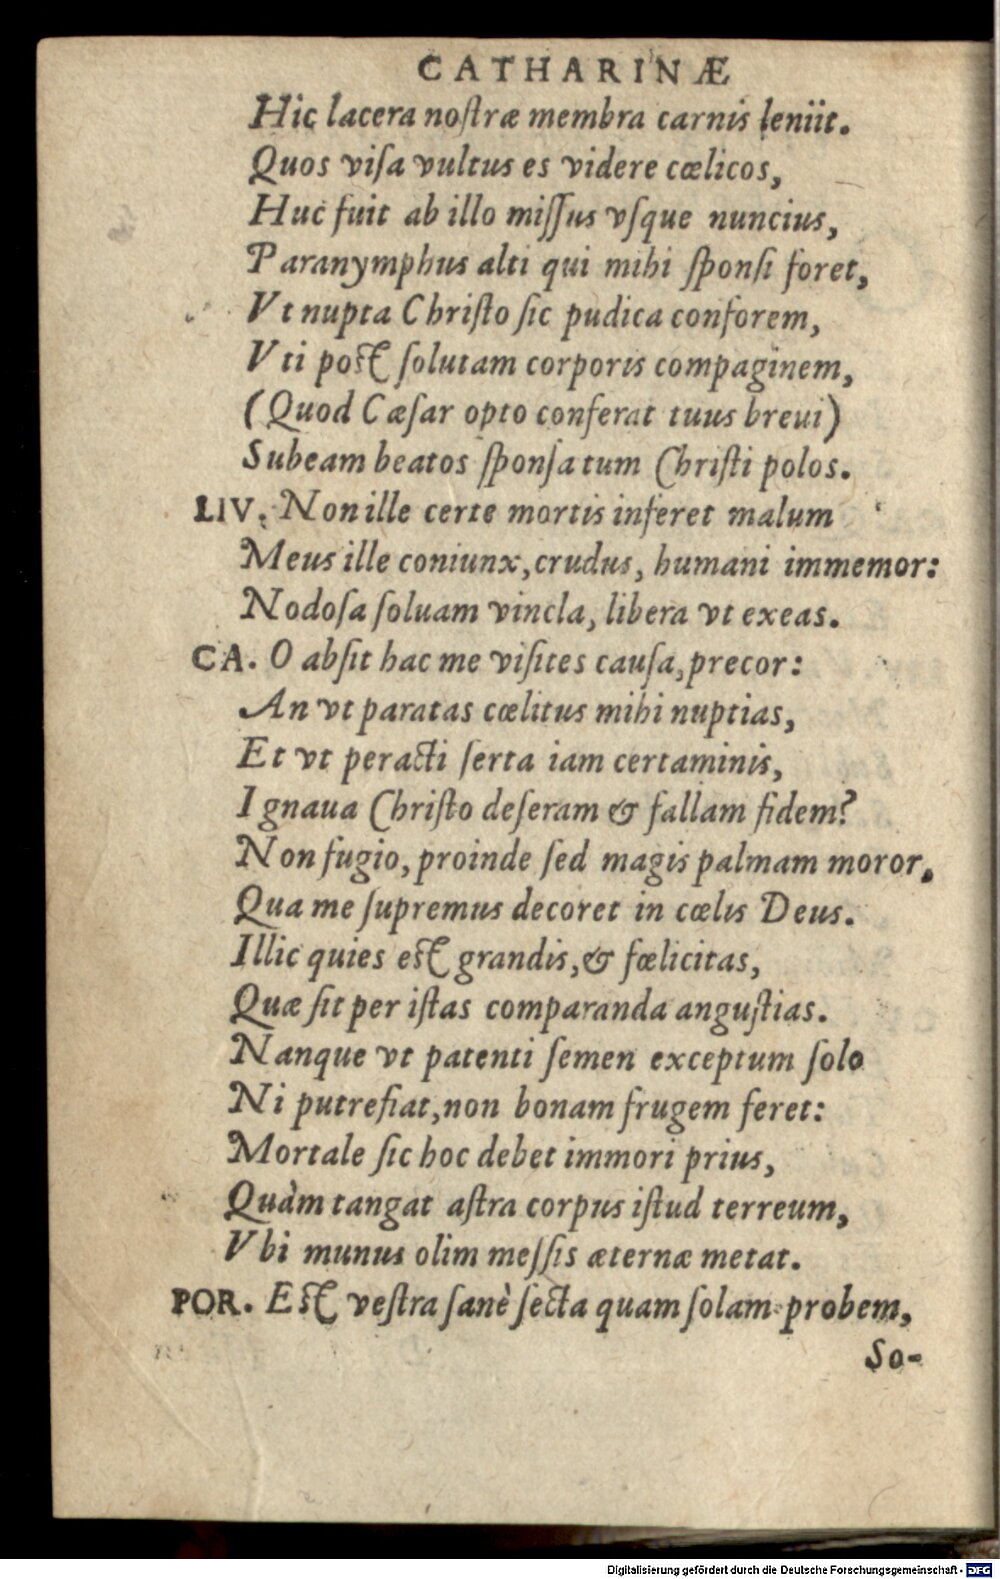 CATHARINÆ
Hic lacera noſtræ membra carnis leniit.
Quos viſa vultus es videre cœlicos,
Huc fuit ab illo miſſus vſque nuncius,
Paranymphus alti qui mihi ſponſi foret,
Vt nupta Chriſto ſic pudica conforem,
Vti poſt ſolutam corporis compaginem,
(Quod Cæſar opto conferat tuus breui)
Subeam beatos ſponſa tum Chriſti polos.
LIV. Non ille certe mortis inferet malum
Meus ille coniunx, crudus, humani immemor:
Nodoſa ſoluam vincla, libera vt exeas.
CA. O abſit hac me viſites cauſa, precor:
An vt paratas cœlitus mihi nuptias,
Et vt peracti ſerta iam certaminis,
Ignaua Chriſto deſeram & fallam fidem?
Non fugio, proinde ſed magis palmam moror,
Qua me ſupremus decoret in cœlis Deus.
Illic quies eſt grandis, & fœlicitas,
Quæ ſit per iſtas comparanda anguſtias.
Nanque vt patenti ſemen exceptum ſolo
Ni putrefiat, non bonam frugem feret:
Mortale ſic hoc debet immori prius,
Quàm tangat aſtra corpus iſtud terreum,
Vbi munus olim meſſis æternæ metat.
POR. Eſt veſtra ſanè ſecta quam ſolam probem,
So-
Digitalisierung gefördert durch die Deutsche Forschungsgemeinschaft - DFG